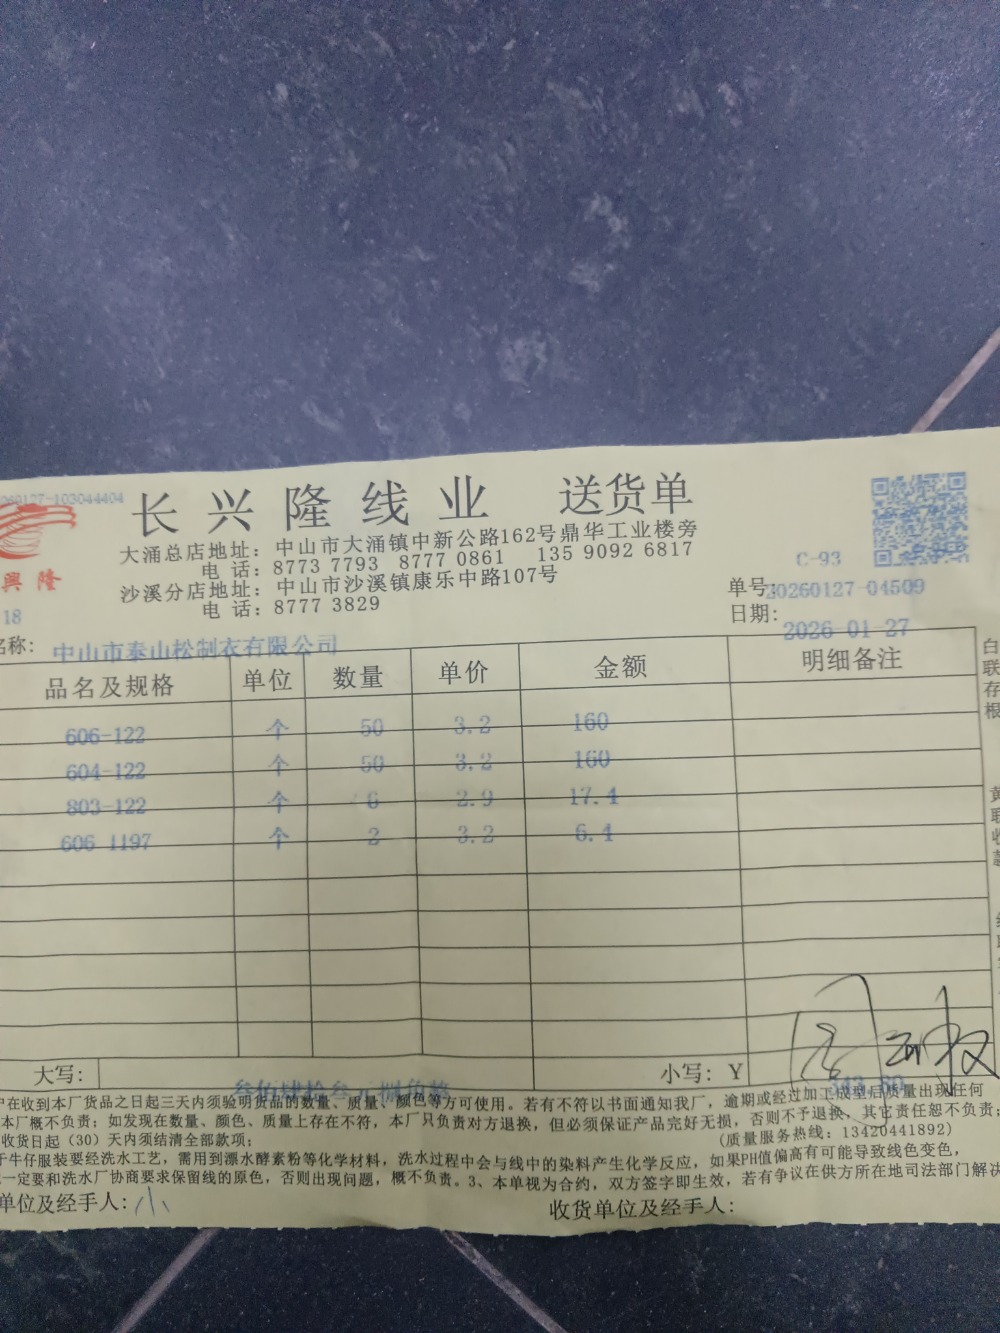 260127-103044404
长兴隆线业 送货单
大涌总店地址：中山市大涌镇中新公路162号鼎华工业楼旁
电 话：8773 7793 8777 0861 135 9092 6817
沙溪分店地址：中山市沙溪镇康乐中路107号
电 话：8777 3829
興隆
18
C-93
单号：20260127-04509
日期：2026-01-27
名称：中山市泰山松制衣有限公司
品名及规格 单位 数量 单价 金额 明细备注
606-122 个 50 3.2 160
604-122 个 50 3.2 160
803-122 个 6 2.9 17.4
606-1197 个 2 3.2 6.4
白联存根
黄联收
大写：叁佰肆拾叁元捌角整 小写：Y 343.80
户在收到本厂货品之日起三天内须验明货品的数量、质量、颜色等方可使用。若有不符以书面通知我厂，逾期或经过加工成型后质量出现任何
本厂概不负责；如发现在数量、颜色、质量上存在不符，本厂只负责对方退换，但必须保证产品完好无损，否则不予退换，其它责任恕不负责；
收货日起（30）天内须结清全部款项； (质量服务热线：13420441892)
于牛仔服装要经洗水工艺，需用到漂水酵素粉等化学材料，洗水过程中会与线中的染料产生化学反应，如果PH值偏高有可能导致线色变色，
一定要和洗水厂协商要求保留线的原色，否则出现问题，概不负责。3、本单视为合约，双方签字即生效，若有争议在供方所在地司法部门解决
单位及经手人：小 收货单位及经手人：